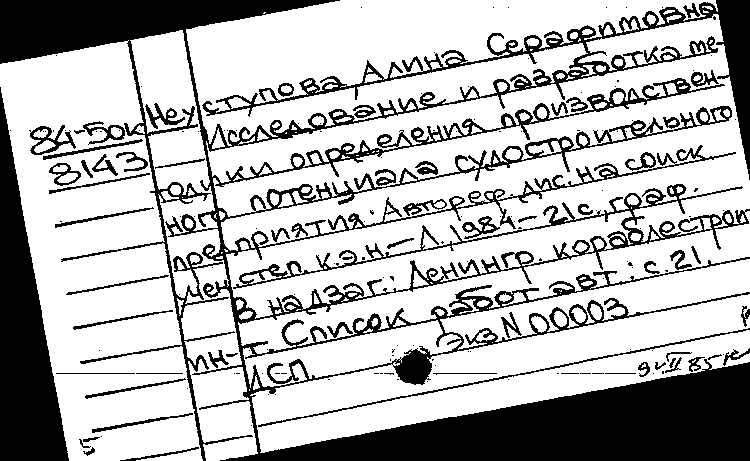 Неуступова, Алина Серафимовна
84-50к
8143
Исследование и разработка ме-
тодики определения производствен-
ного потенциала судостроительного
предприятия. Автореф. дис. на соиск.
учен. степ. к.э.н.—Л., 1984.—21с., граф.
В надзаг.: Ленингр. кораблестроит.
ин-т. Список работ авт.: с. 21.
ДСП. Экз.N 00003.
5